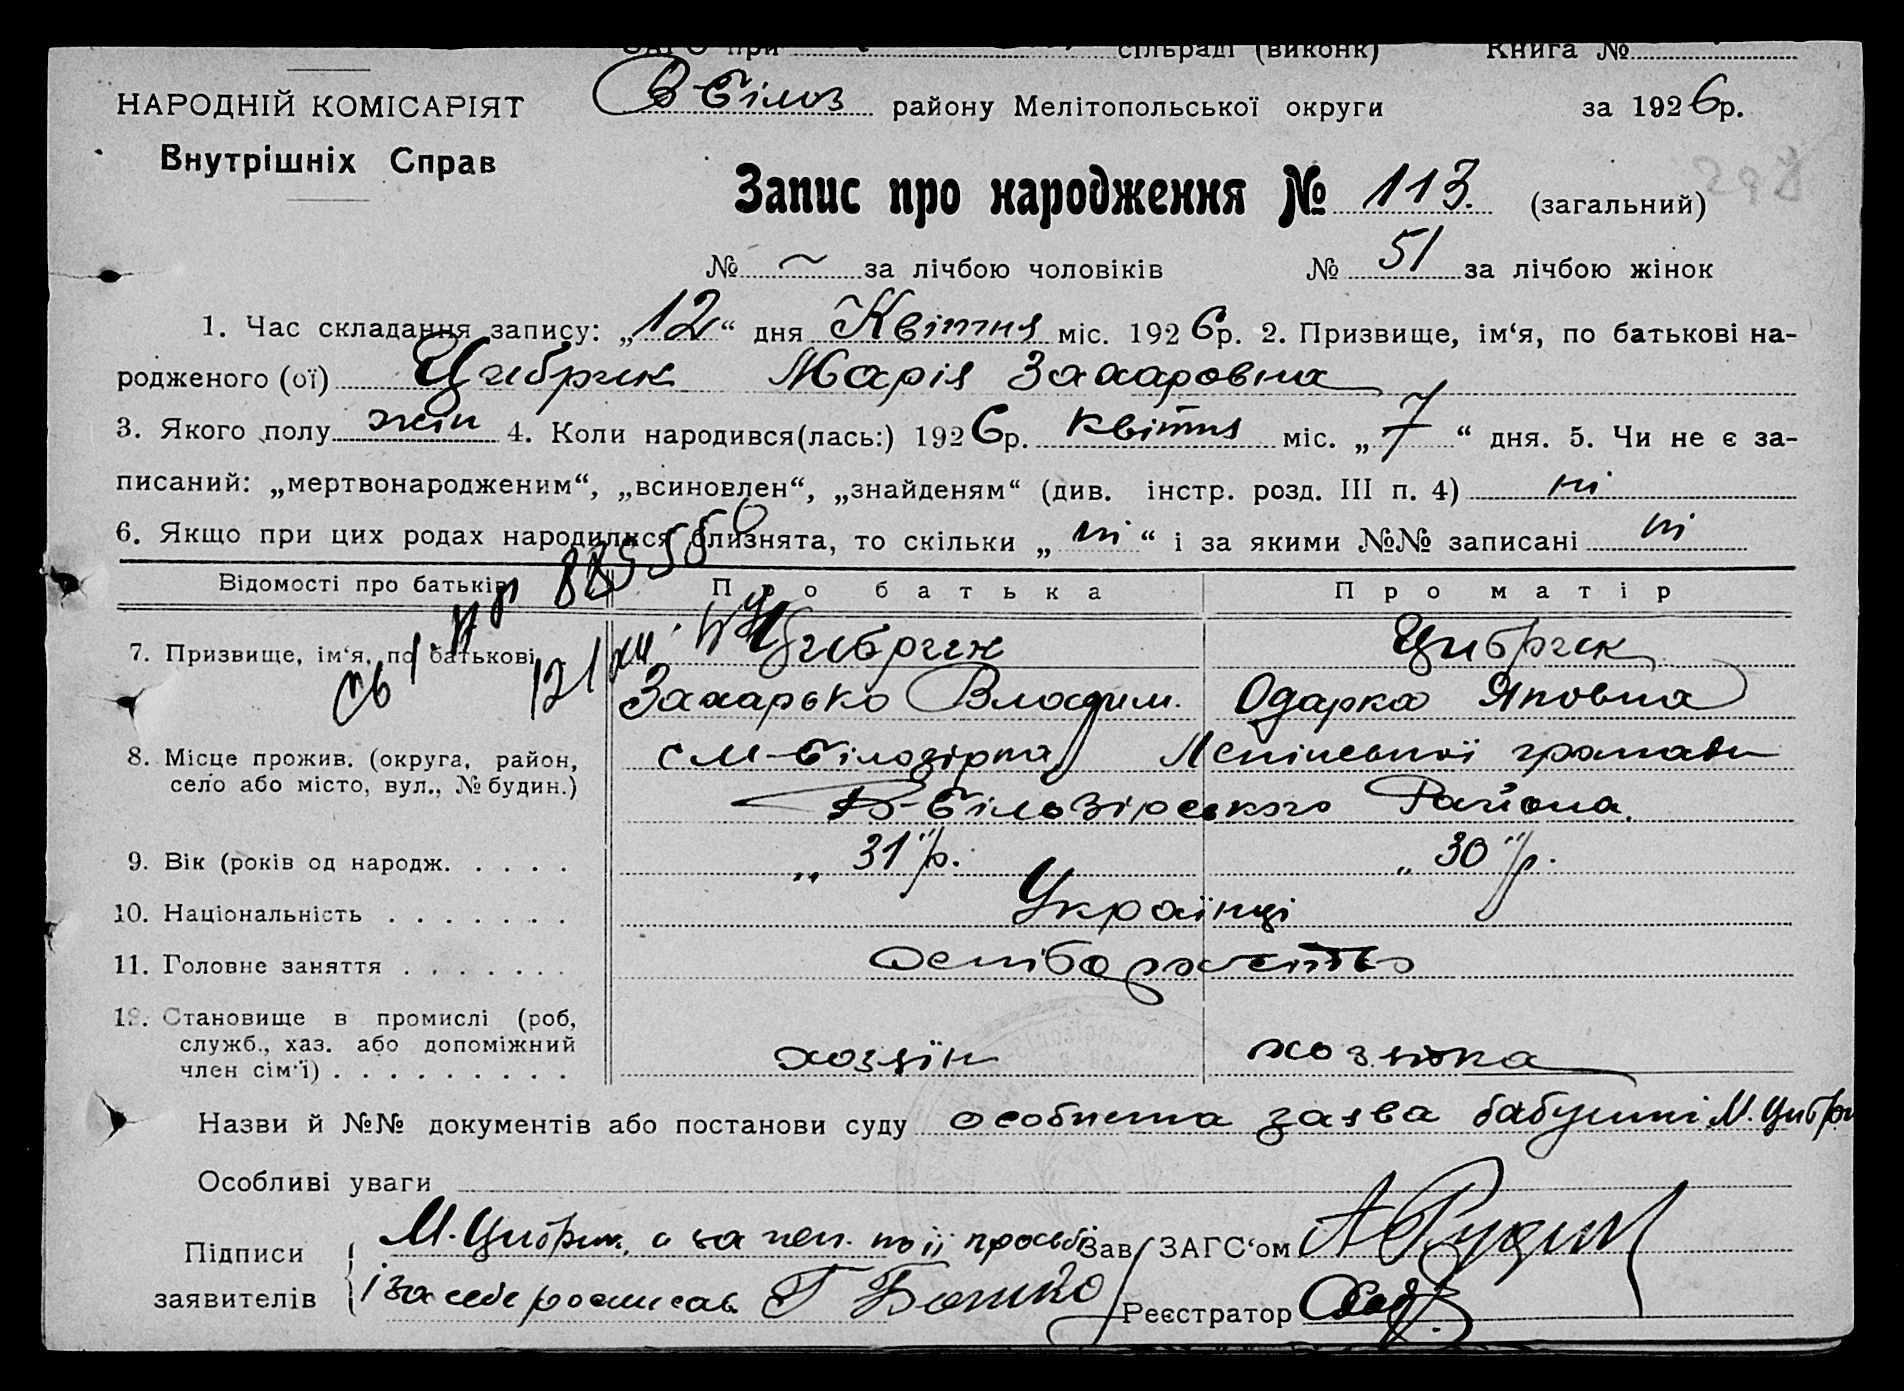 ЗАГС при сільраді (виконк) Книга №
НАРОДНІЙ КОМІСАРІЯТ
Внутрішніх Справ
В-Білоз району Мелітопольської округи за 1926р.
298
Запис про народження № 113. (загальний)
№ ~ за лічбою чоловіків № 51 за лічбою жінок
1. Час складання запису: „12“ дня Квітня міс. 1926р. 2. Призвище, ім‘я, по батькові на-
родженого (ої) Цибрик Марія Захаровна
3. Якого полу жін 4. Коли народився(лась:) 1926р. квітня міс. „7“ дня. 5. Чи не є за-
писаний: „мертвонародженим“, „всиновлен“, „знайденям“ (див. інстр. розд. III п. 4) ні
6. Якщо при цих родах народилися близнята, то скільки „ні“ і за якими №№ записані ні
Відомості про батьків Про батька Про матір
7. Призвище, ім‘я, по батькові Цибрик Цибрик
Захарько Владим. Одарка Яковна
8. Місце прожив. (округа, район, с М-Білозірка Ленінської громади
село або місто, вул., № будин.) В-Білозірського Района.
9. Вік (років од народж. . . . . „31“ р. „30“ р.
10. Національність . . . . . . . Українці
11. Головне заняття . . . . . . . хліборобство
12. Становище в промислі (роб,
служб., хаз. або допоміжний хозяїн хозяйка
член сім‘ї) . . . . . . . . .
Назви й №№ документів або постанови суду особиста заява бабушки М. Цибрик
Особливі уваги
Підписи М. Цибрик, а за неп. по її просьбі Зав. ЗАГС‘ом
заявителів і за себе росписав Г Божко Реєстратор